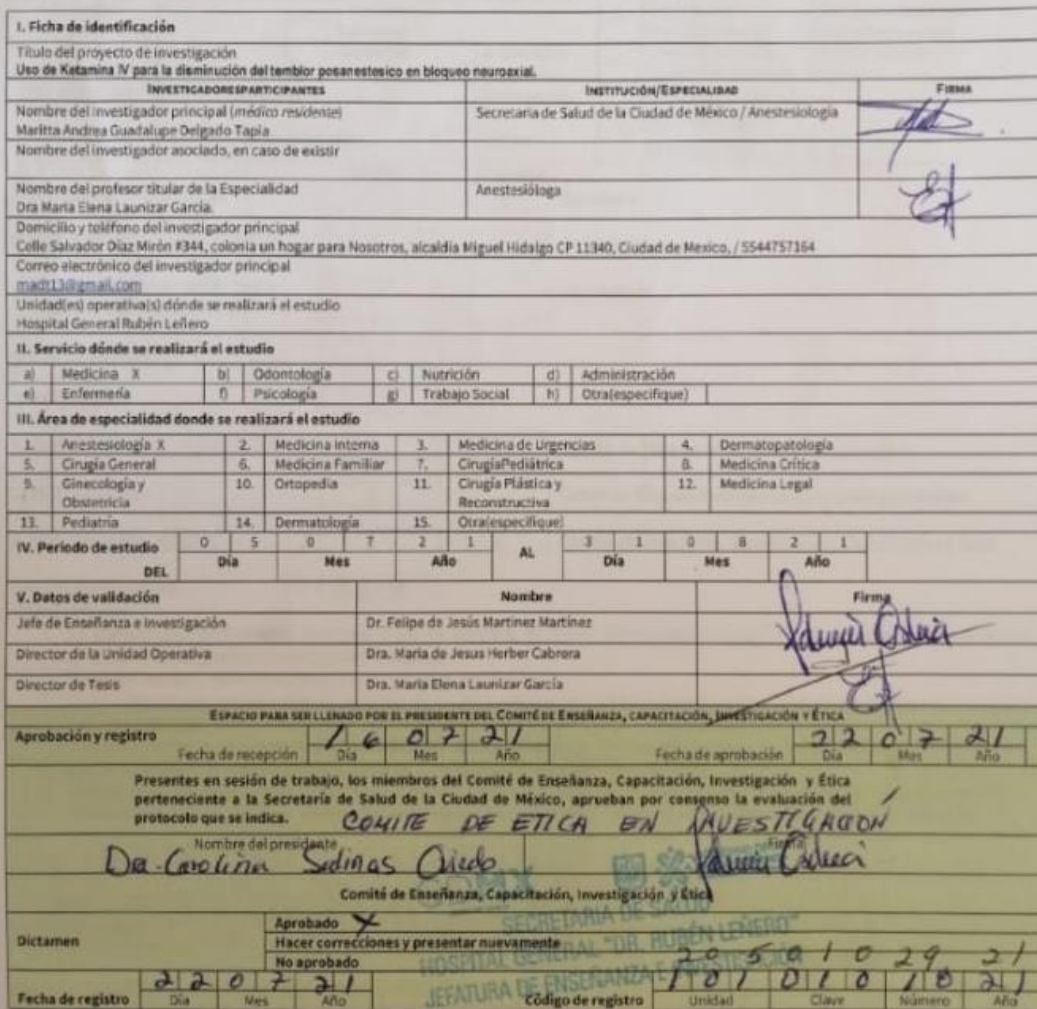 I. Ficha de identificación
Título del proyecto de investigación
Uso de Ketamina IV para la disminución del temblor posanestesico en bloqueo neuroaxial.
INVESTIGADORESPARTICIPANTES INSTITUCIÓN/ESPECIALIDAD FIRMA
Nombre del investigador principal (médico residente) Secretaria de Salud de la Ciudad de México / Anestesiología
Maritta Andrea Guadalupe Delgado Tapia
Nombre del investigador asociado, en caso de existir
Nombre del profesor titular de la Especialidad Anestesióloga
Dra Maria Elena Launizar García.
Domicilio y teléfono del investigador principal
Calle Salvador Díaz Mirón #344, colonia un hogar para Nosotros, alcaldía Miguel Hidalgo CP 11340, Ciudad de Mexico, / 5544757164
Correo electrónico del investigador principal
madt13@gmail.com
Unidad(es) operativa(s) dónde se realizará el estudio
Hospital General Rubén Leñero
II. Servicio dónde se realizará el estudio
a) Medicina X b) Odontología c) Nutrición d) Administración
e) Enfermería f) Psicología g) Trabajo Social h) Otra(especifique)
III. Área de especialidad donde se realizará el estudio
1. Anestesiología X 2. Medicina Interna 3. Medicina de Urgencias 4. Dermatopatología
5. Cirugía General 6. Medicina Familiar 7. CirugíaPediátrica 8. Medicina Crítica
9. Ginecología y Obstetricia 10. Ortopedia 11. Cirugía Plástica y Reconstructiva 12. Medicina Legal
13. Pediatría 14. Dermatología 15. Otra(especifique)
IV. Periodo de estudio 0 5 0 7 2 1 AL 3 1 0 8 2 1
DEL Día Mes Año Día Mes Año
V. Datos de validación Nombre Firma
Jefe de Enseñanza e Investigación Dr. Felipe de Jesús Martinez Martinez
Director de la Unidad Operativa Dra. Maria de Jesus Herber Cabrera
Director de Tesis Dra. Maria Elena Launizar García
ESPACIO PARA SER LLENADO POR EL PRESIDENTE DEL COMITÉ DE ENSEÑANZA, CAPACITACIÓN, INVESTIGACIÓN Y ÉTICA
Aprobación y registro 1 6 0 7 2 1 2 2 0 7 2 1
Fecha de recepción Día Mes Año Fecha de aprobación Día Mes Año
Presentes en sesión de trabajo, los miembros del Comité de Enseñanza, Capacitación, Investigación y Ética
perteneciente a la Secretaría de Salud de la Ciudad de México, aprueban por consenso la evaluación del
protocolo que se indica. COMITE DE ETICA EN INVESTIGACION
Nombre del presidente Firma
Dra. Carolina Salinas Oviedo
Comité de Enseñanza, Capacitación, Investigación y Ética
SECRETARIA DE SALUD
HOSPITAL GENERAL "DR. RUBÉN LEÑERO"
JEFATURA DE ENSEÑANZA E INVESTIGACIÓN
Dictamen Aprobado X
Hacer correcciones y presentar nuevamente
No aprobado 20 5 0 1 0 29 21
Fecha de registro 2 2 0 7 2 1 Código de registro 1 0 1 0 1 0 1 0 2 1
Día Mes Año Unidad Clave Número Año